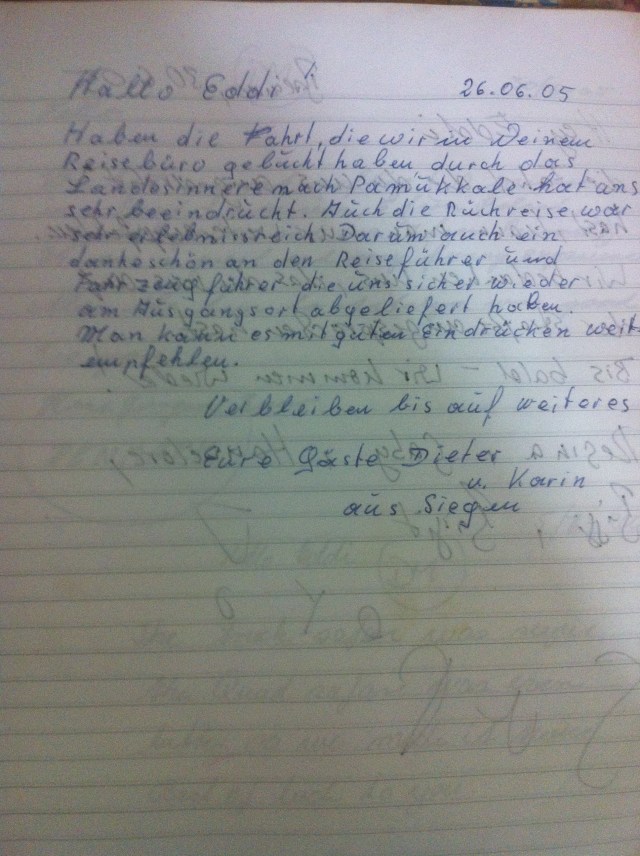 Hallo Eddi! 26.06.05
Haben die Fahrt, die wir in Deinem
Reisebüro gebücht haben durch das
Landesinnere nach Pamükkale hat uns
sehr beeindrückt. Aüch die Rückreise war
sehr erlebnissreich Darüm auch ein
dankeschön an den Reiseführer und
Fahrzeugführer die uns sicher wieder
am Ausgangsort abgeliefert haben.
Man kann es mit güten eindrücken weit-
empfehlen.
Verbleiben bis auf weiteres
Eure Gäste Dieter
u. Karin
aus Siegen